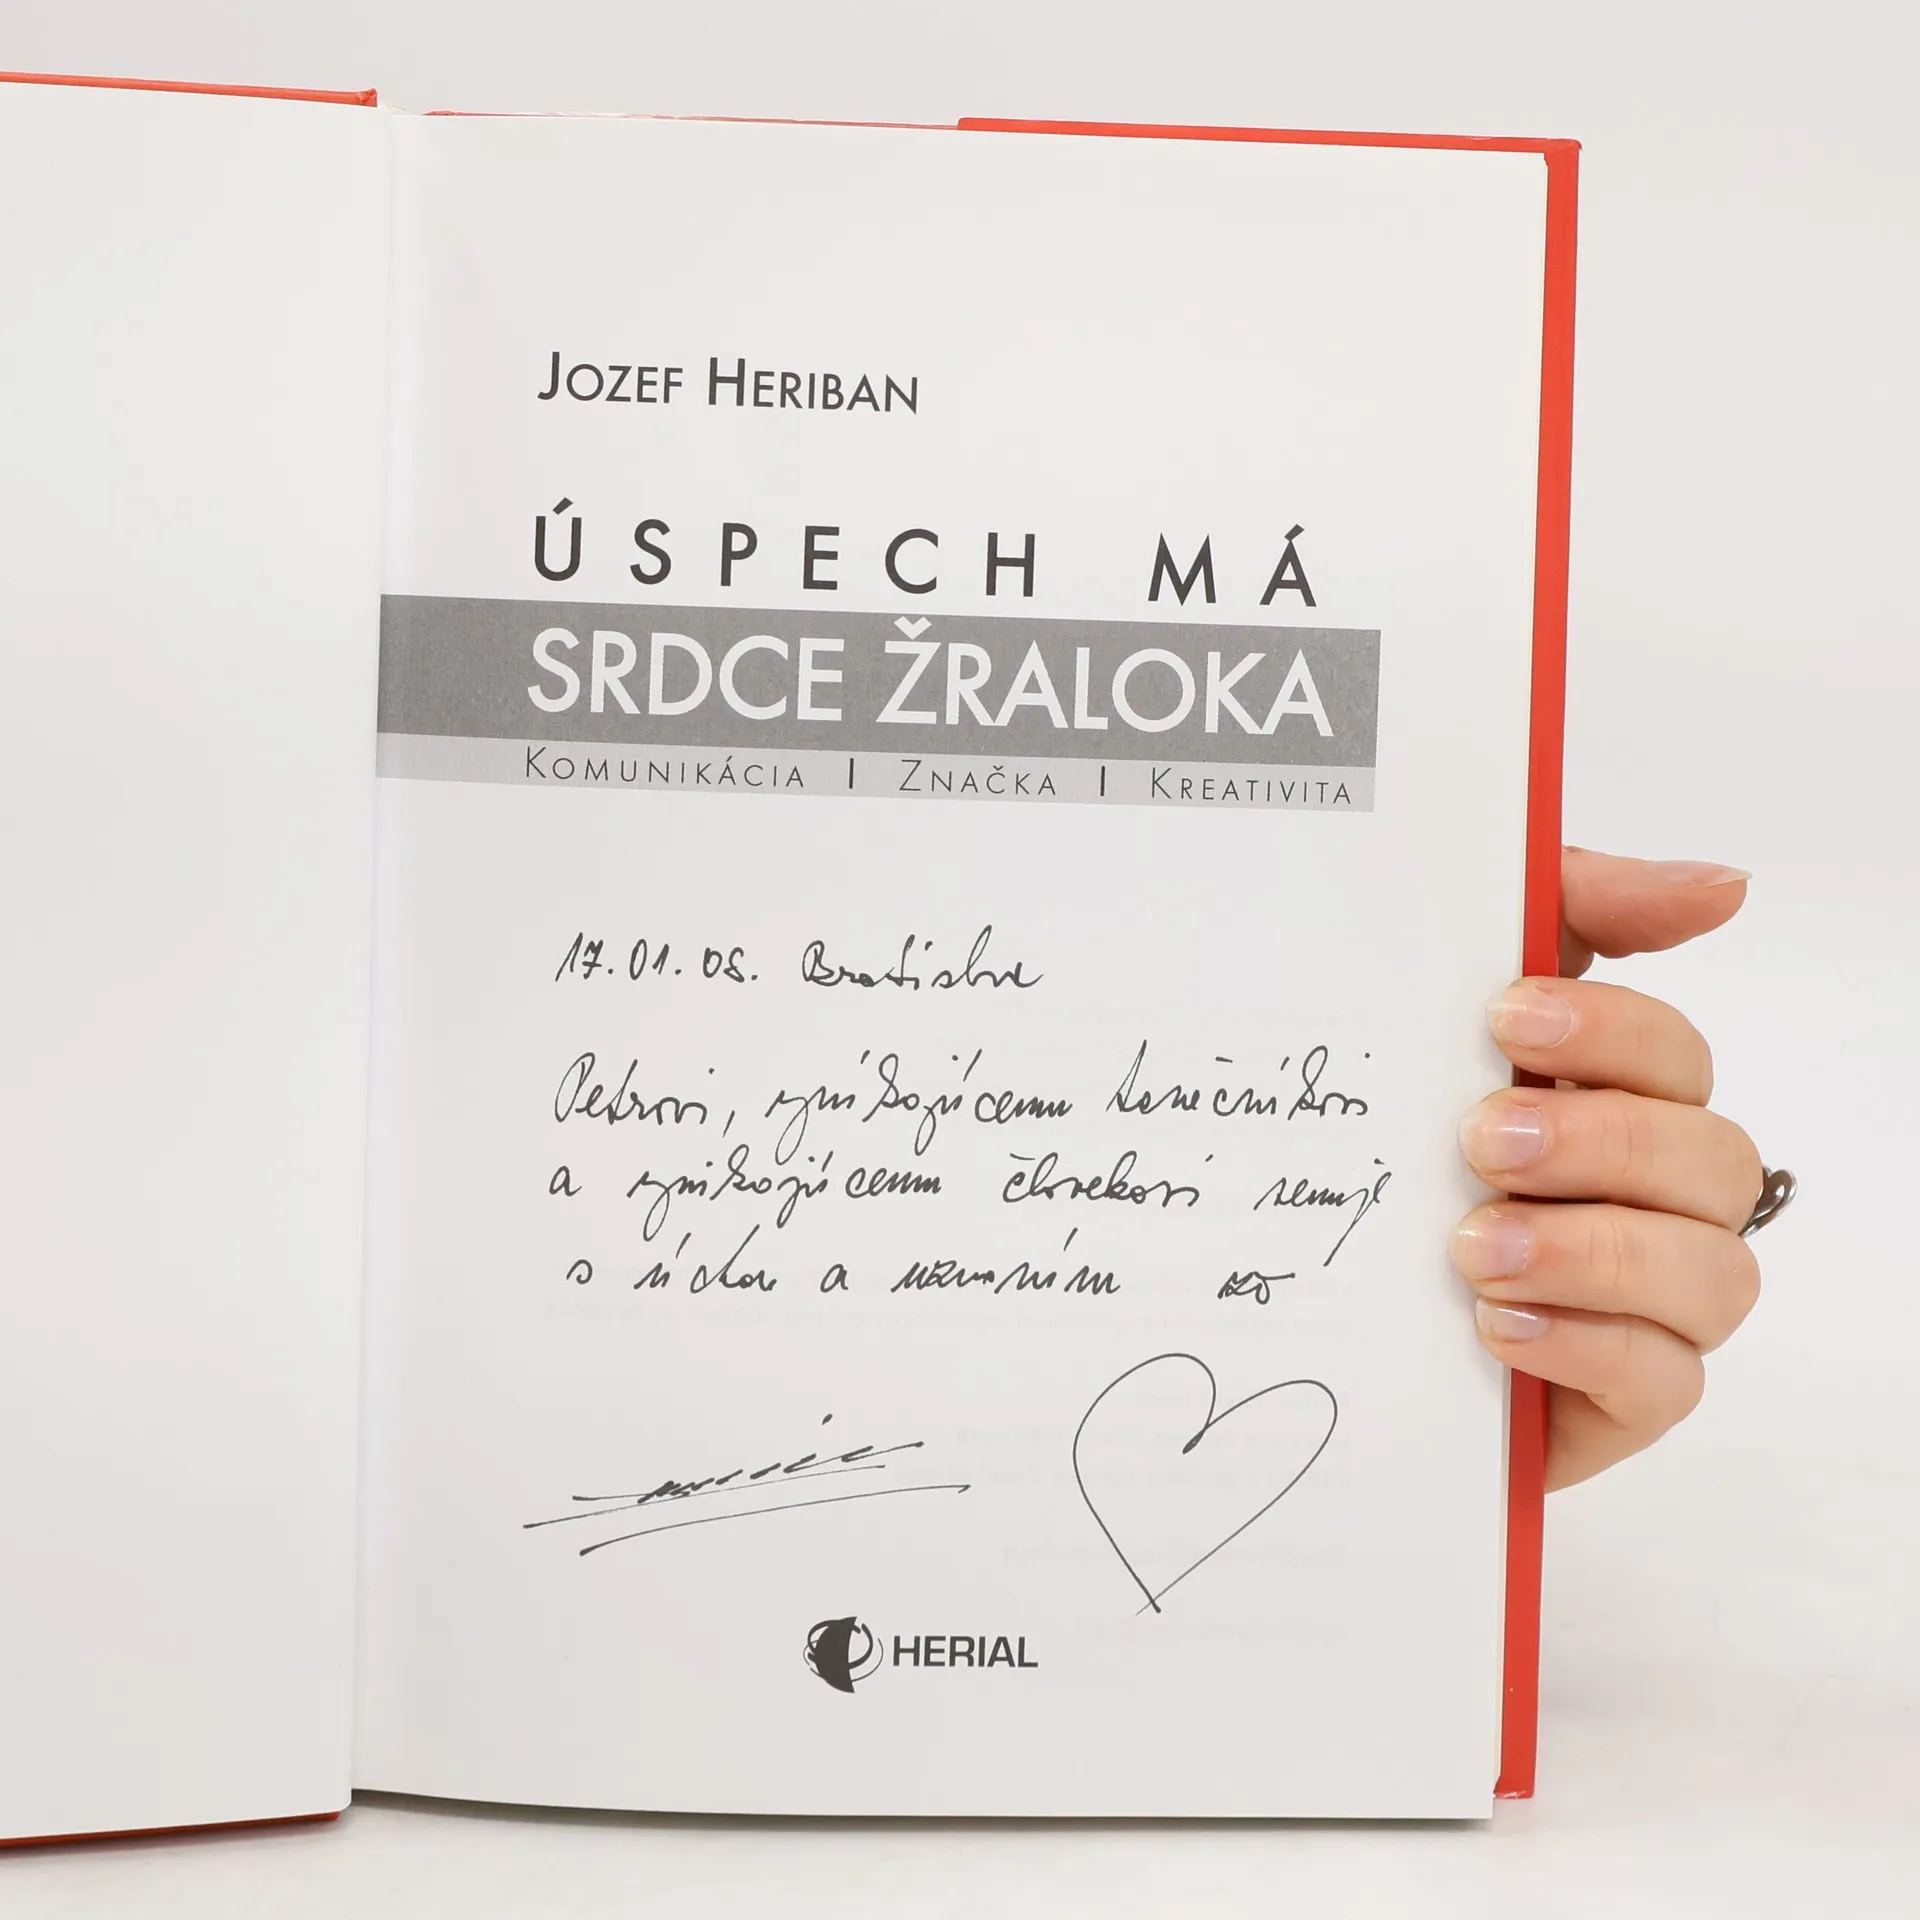 JOZEF HERIBAN
ÚSPECH MÁ
SRDCE ŽRALOKA
KOMUNIKÁCIA | ZNAČKA | KREATIVITA
17.01.08. Bratislava
Petrovi, vynikajúcemu tanečníkovi
a vynikajúcemu človekovi venuje
s úctou a uznaním
HERIAL